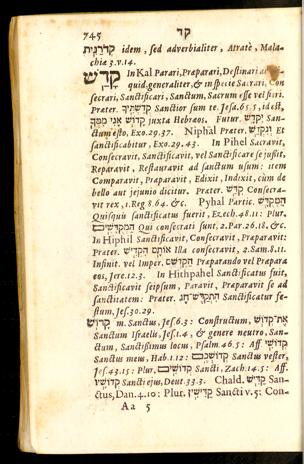 745 קד
קְדֹרַנִּית idem, sed adverbialiter, Atratè, Mala-
chiæ 3.v.14.
קָדַשׁ In Kal Parari, Præparari, Destinari ad
quid.generaliter,& in specie Sacrari, Con
secrari, Sanctificari, Sanctum, Sacrum esse vel fieri.
Prater. קְדַשְׁתִּיךָ Sanctior sum te. Jesa.65.5, idest,
קָדוֹשׁ אֲנִי מִמְּךָ juxta Hebræos. Futur. יִקְדַּשׁ San-
ctum esto, Exo.29.37. Niphal Prater. וְנִקְדַּשׁ Et
sanctificabitur, Exo.29.43. In Pihel Sacravit,
Consecravit, Sanctificavit, vel Sanctificare se jussit,
Reparavit, Restauravit ad sanctum usum: item
Comparavit, Præparavit, Edixit, Indixit, cùm de
bello aut jejunio dicitur. Prater. קִדֵּשׁ Consecra-
vit rex,1.Reg 8.64. &c. Pyhal Partic. הַמְקֻדָּשׁ
Quisquis sanctificatus fuerit, Ezech.48.11: Plur.
הַמְקֻדָּשִׁים Qui consecrati sunt. 2.Par.26.18. &c.
In Hiphil Sanctificavit, Consecravit, Præparavit:
Prater. אֹתָם הִקְדִּישׁ Illa consecravit, 2.Sam.8.11.
Infinit. vel Imper. הַקְדִּשׁ Præparando vel Præpara
eos, Jere.12.3. In Hithpahel Sanctificatus fuit,
Sanctificavit seipsum, Paravit, Præparavit se ad
sanctitatem: Prater. הִתְקַדֶּשׁ־חָג Sanctificatur fe-
stum, Jes.30.29.
קָדוֹשׁ m. Sanctus, Jes.6.3: Constructum, אֶת־קְדוֹשׁ
Sanctum Israelis, Jes.1.4, & genere neutro, San-
ctum, Sanctissimus locus, Psalm.46.5: Aff. קְדֹשִׁי
Sanctus meus, Hab.1.12: קְדוֹשְׁכֶם Sanctus vester,
Jes.43.15: Plur. קְדֹשִׁים Sancti, Zach.14.5: Aff.
קְדֹשָׁיו Sancti ejus, Deut.33.3. Chald. קַדִּישׁ San-
ctus, Dan.4.10: Plur. קַדִּישִׁין Sancti v.5: Con-
Aa 5